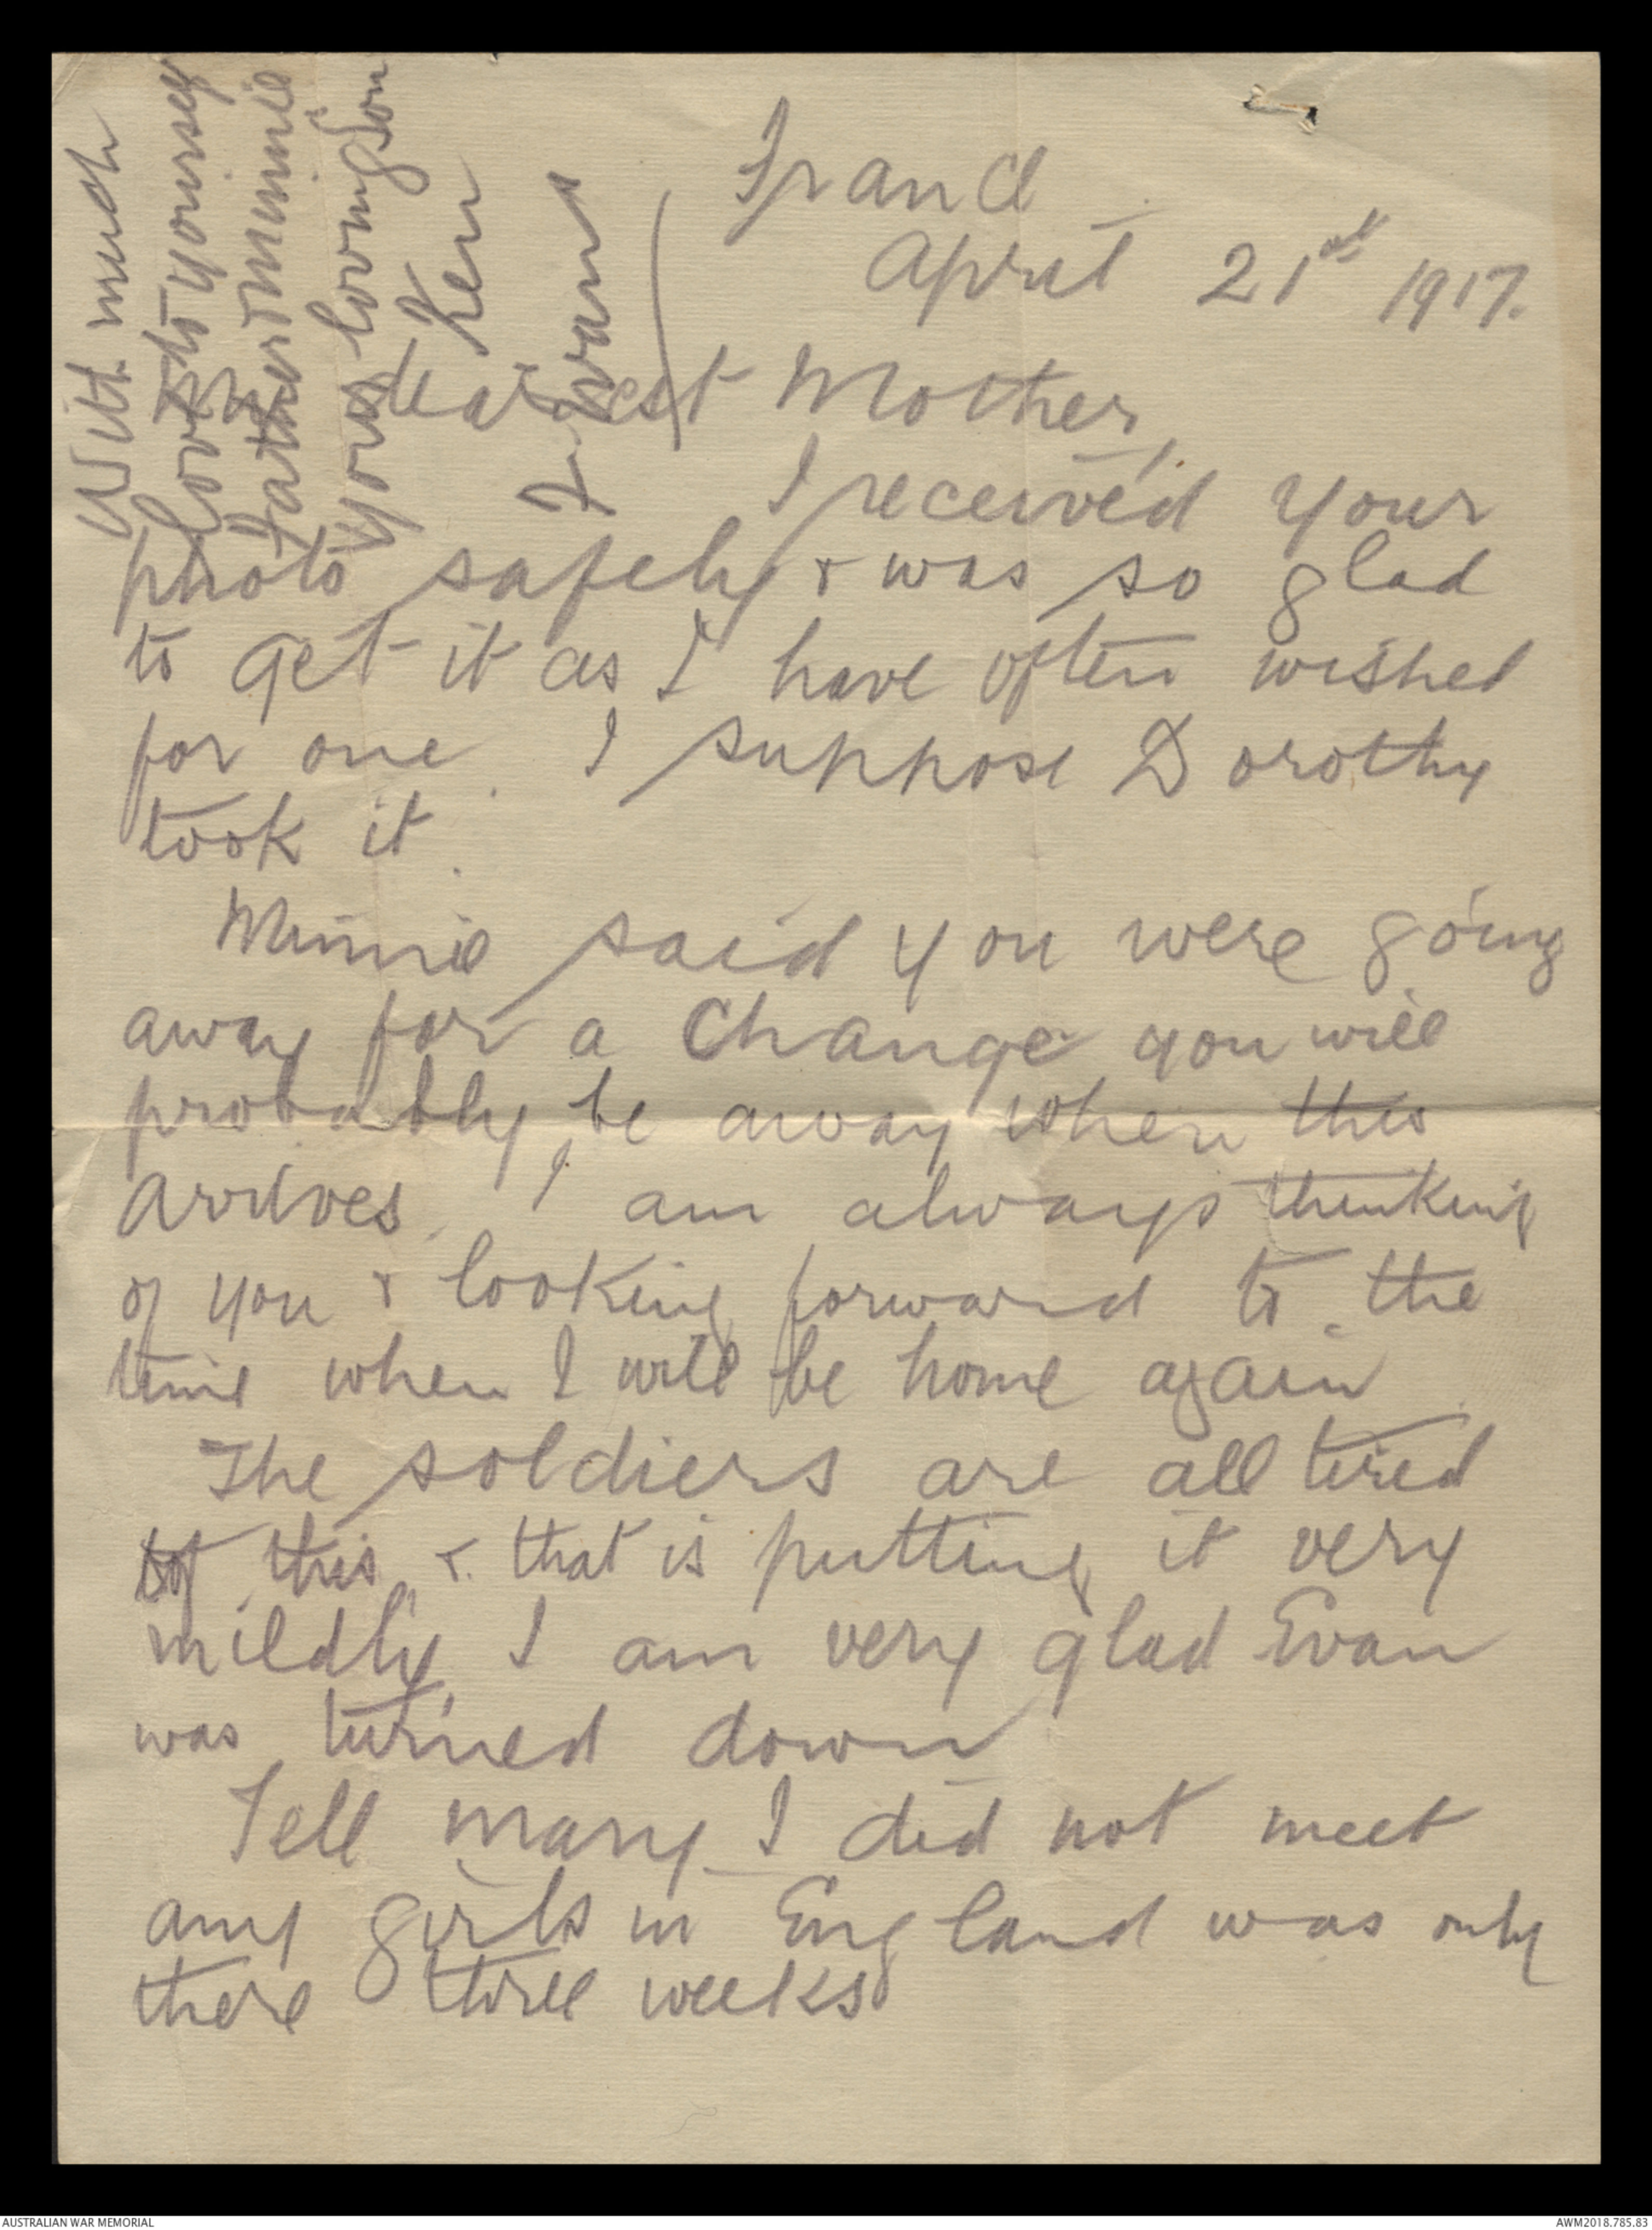 France
April 21st 1917.
dearest Mother,
I received your
photo safely & was so glad
to get it as I have often wished
for one. I suppose Dorothy
took it.
Minnie said you were going
away for a change you will
probably be away when this
arrives. I am always thinking
of you & looking forward to the
time when I will be home again
The soldiers are all tired
of this & that is putting it very
mildly. I am very glad Evan
was turned down
Tell mary I did not meet
any girls in England was only
there three weeks
With much
love to yourself
Father & Minnie
Your loving son
Ken
& Evans
AUSTRALIAN WAR MEMORIAL
AWM2018.785.83